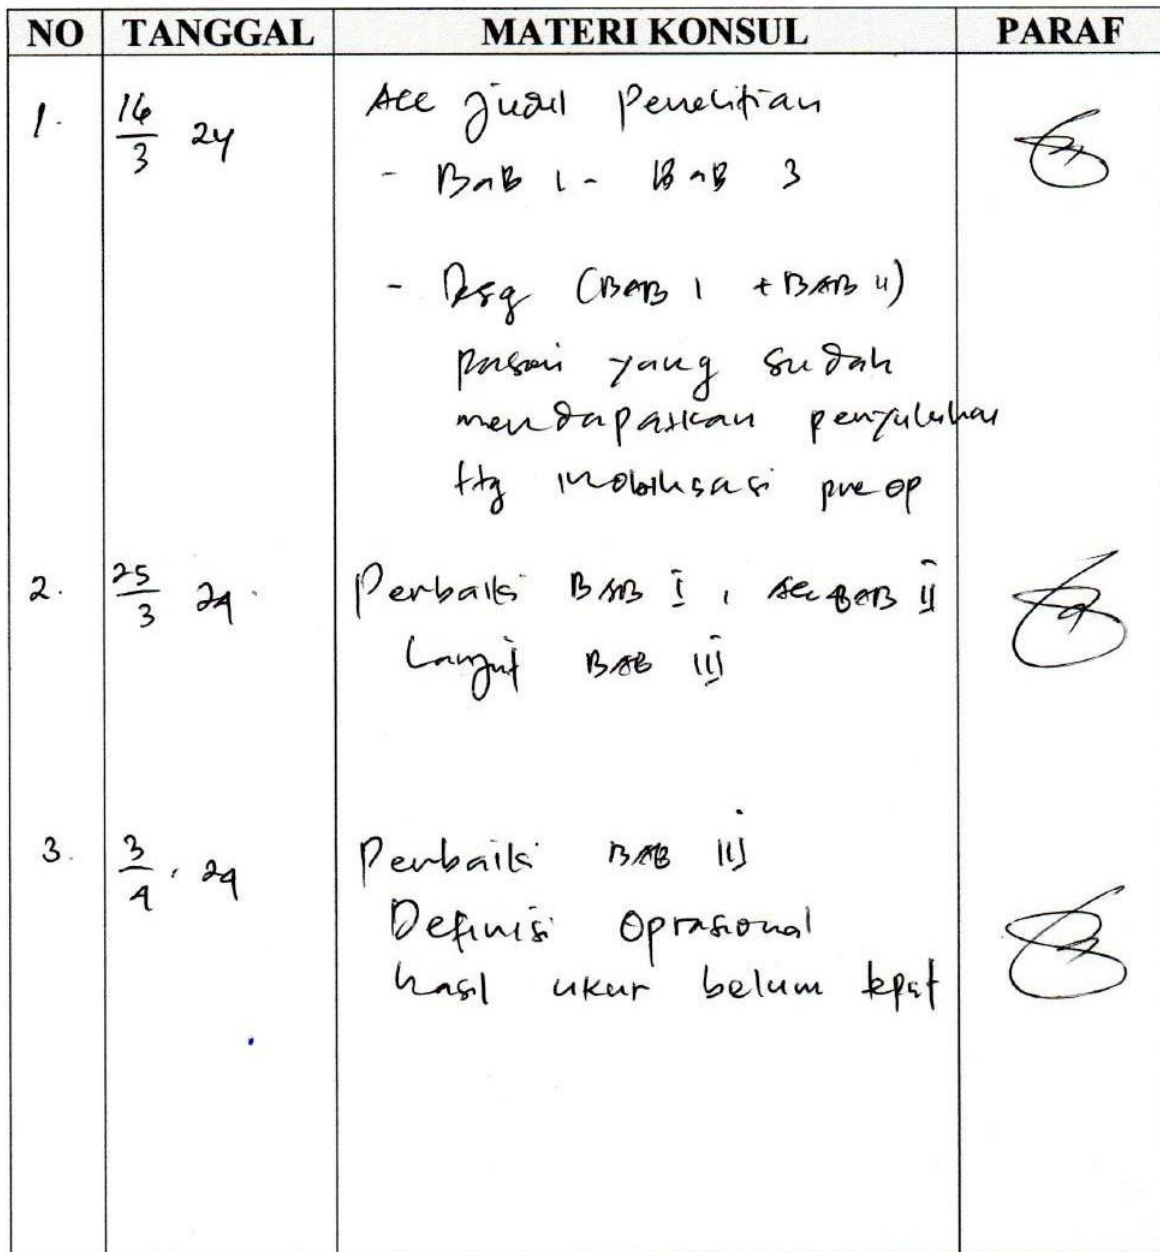 NO TANGGAL MATERI KONSUL PARAF
1. 16/3 24 Acc Judul Penelitian
- BAB 1 - BAB 3
- (BAB 1 + BAB II)
pasien yang sudah
mendapatkan penyuluhan
ttg mobilisasi pre op
2. 25/3 24. Perbaiki BAB I, Acc BAB II
Lanjut BAB III
3. 3/4 . 24 Perbaiki BAB III
Definisi Oprasional
hasil ukur belum tepat